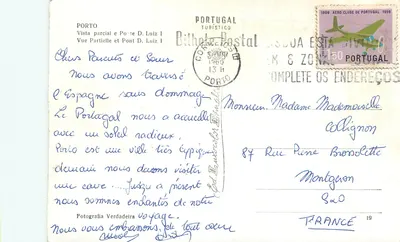 PORTO
Vista parcial e Ponte D. Luiz I
Vue Partielle et Pont D. Luiz I
PORTUGAL
TURÍSTICO
Bilhete Postal
CORREIOS
PORTO
LISBOA ESTÁ
& ZONA
COMPLETE OS ENDEREÇOS
AERO CLUBE DE PORTUGAL
PORTUGAL
Chers Parents et Sœur
Nous avons traversé
l'Espagne sans dommage
Le Portugal nous a accueilli
avec un soleil radieux.
Porto est une ville très typique
demain nous devons visiter
une cave.... Jusqu'à présent
nous sommes enchantés de notre
voyage.
Nous vous embrassons de tout cœur
Monsieur, Madame, Mademoiselle
Collignon
87 Rue Pierre Brossolette
Montgeron
S&O
FRANCE
Fotografia Verdadeira
19